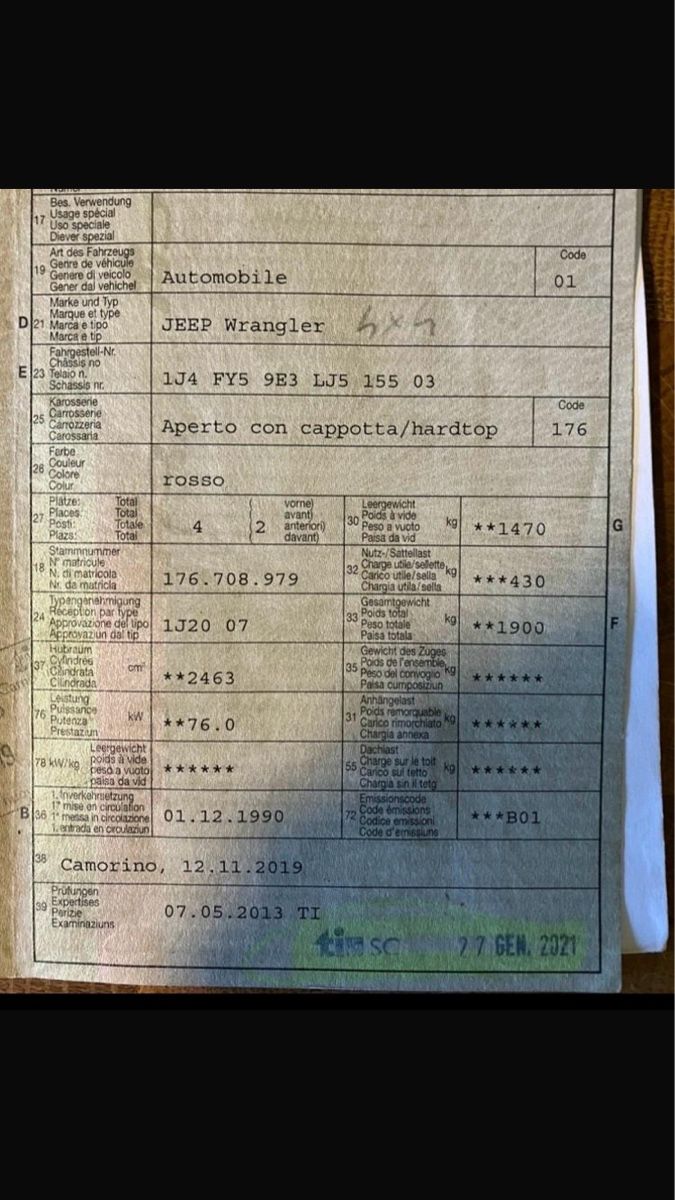 17 Bes. Verwendung
Usage spécial
Uso speciale
Diever spezial
19 Art des Fahrzeugs
Genre de véhicule
Genere di veicolo
Gener dal vehichel
Automobile
Code
01
D 21 Marke und Typ
Marque et type
Marca e tipo
Marca e tip
JEEP Wrangler 4x4
E 23 Fahrgestell-Nr.
Châssis no
Telaio n.
Schassis nr.
1J4 FY5 9E3 LJ5 155 03
25 Karosserie
Carrosserie
Carrozzeria
Carossaria
Aperto con cappotta/hardtop
Code
176
26 Farbe
Couleur
Colore
Colur
rosso
27 Plätze: Total
Places: Total
Posti: Totale
Plazs: Total
4
( 2 vorne)
avant)
anteriori)
davant)
30 Leergewicht
Poids à vide
Peso a vuoto
Paisa da vid
kg
**1470
G
18 Stammnummer
N° matricule
N. di matricola
Nr. da matricla
176.708.979
32 Nutz-/Sattellast
Charge utile/sellette
Carico utile/sella
Chargia utila/sella
kg
***430
24 Typengenehmigung
Réception par type
Approvazione del tipo
Approvaziun dal tip
1J20 07
33 Gesamtgewicht
Poids total
Peso totale
Paisa totala
kg
**1900
F
37 Hubraum
Cylindrée
Cilindrata
Cilindrada
cm³
**2463
35 Gewicht des Zuges
Poids de l'ensemble
Peso del convoglio
Paisa cumposiziun
kg
******
76 Leistung
Puissance
Potenza
Prestaziun
kW
**76.0
31 Anhängelast
Poids remorquable
Carico rimorchiato
Chargia annexa
kg
******
78 kW/kg Leergewicht
poids à vide
peso a vuoto
paisa da vid
******
55 Dachlast
Charge sur le toit
Carico sul tetto
Chargia sin il tetg
kg
******
B 36 1. Inverkehrsetzung
1re mise en circulation
1a messa in circolazione
1. entrada en circulaziun
01.12.1990
72 Emissionscode
Code émissions
Codice emissioni
Code d'emissiuns
***B01
38 Camorino, 12.11.2019
39 Prüfungen
Expertises
Perizie
Examinaziuns
07.05.2013 TI
SC
GEN. 2021